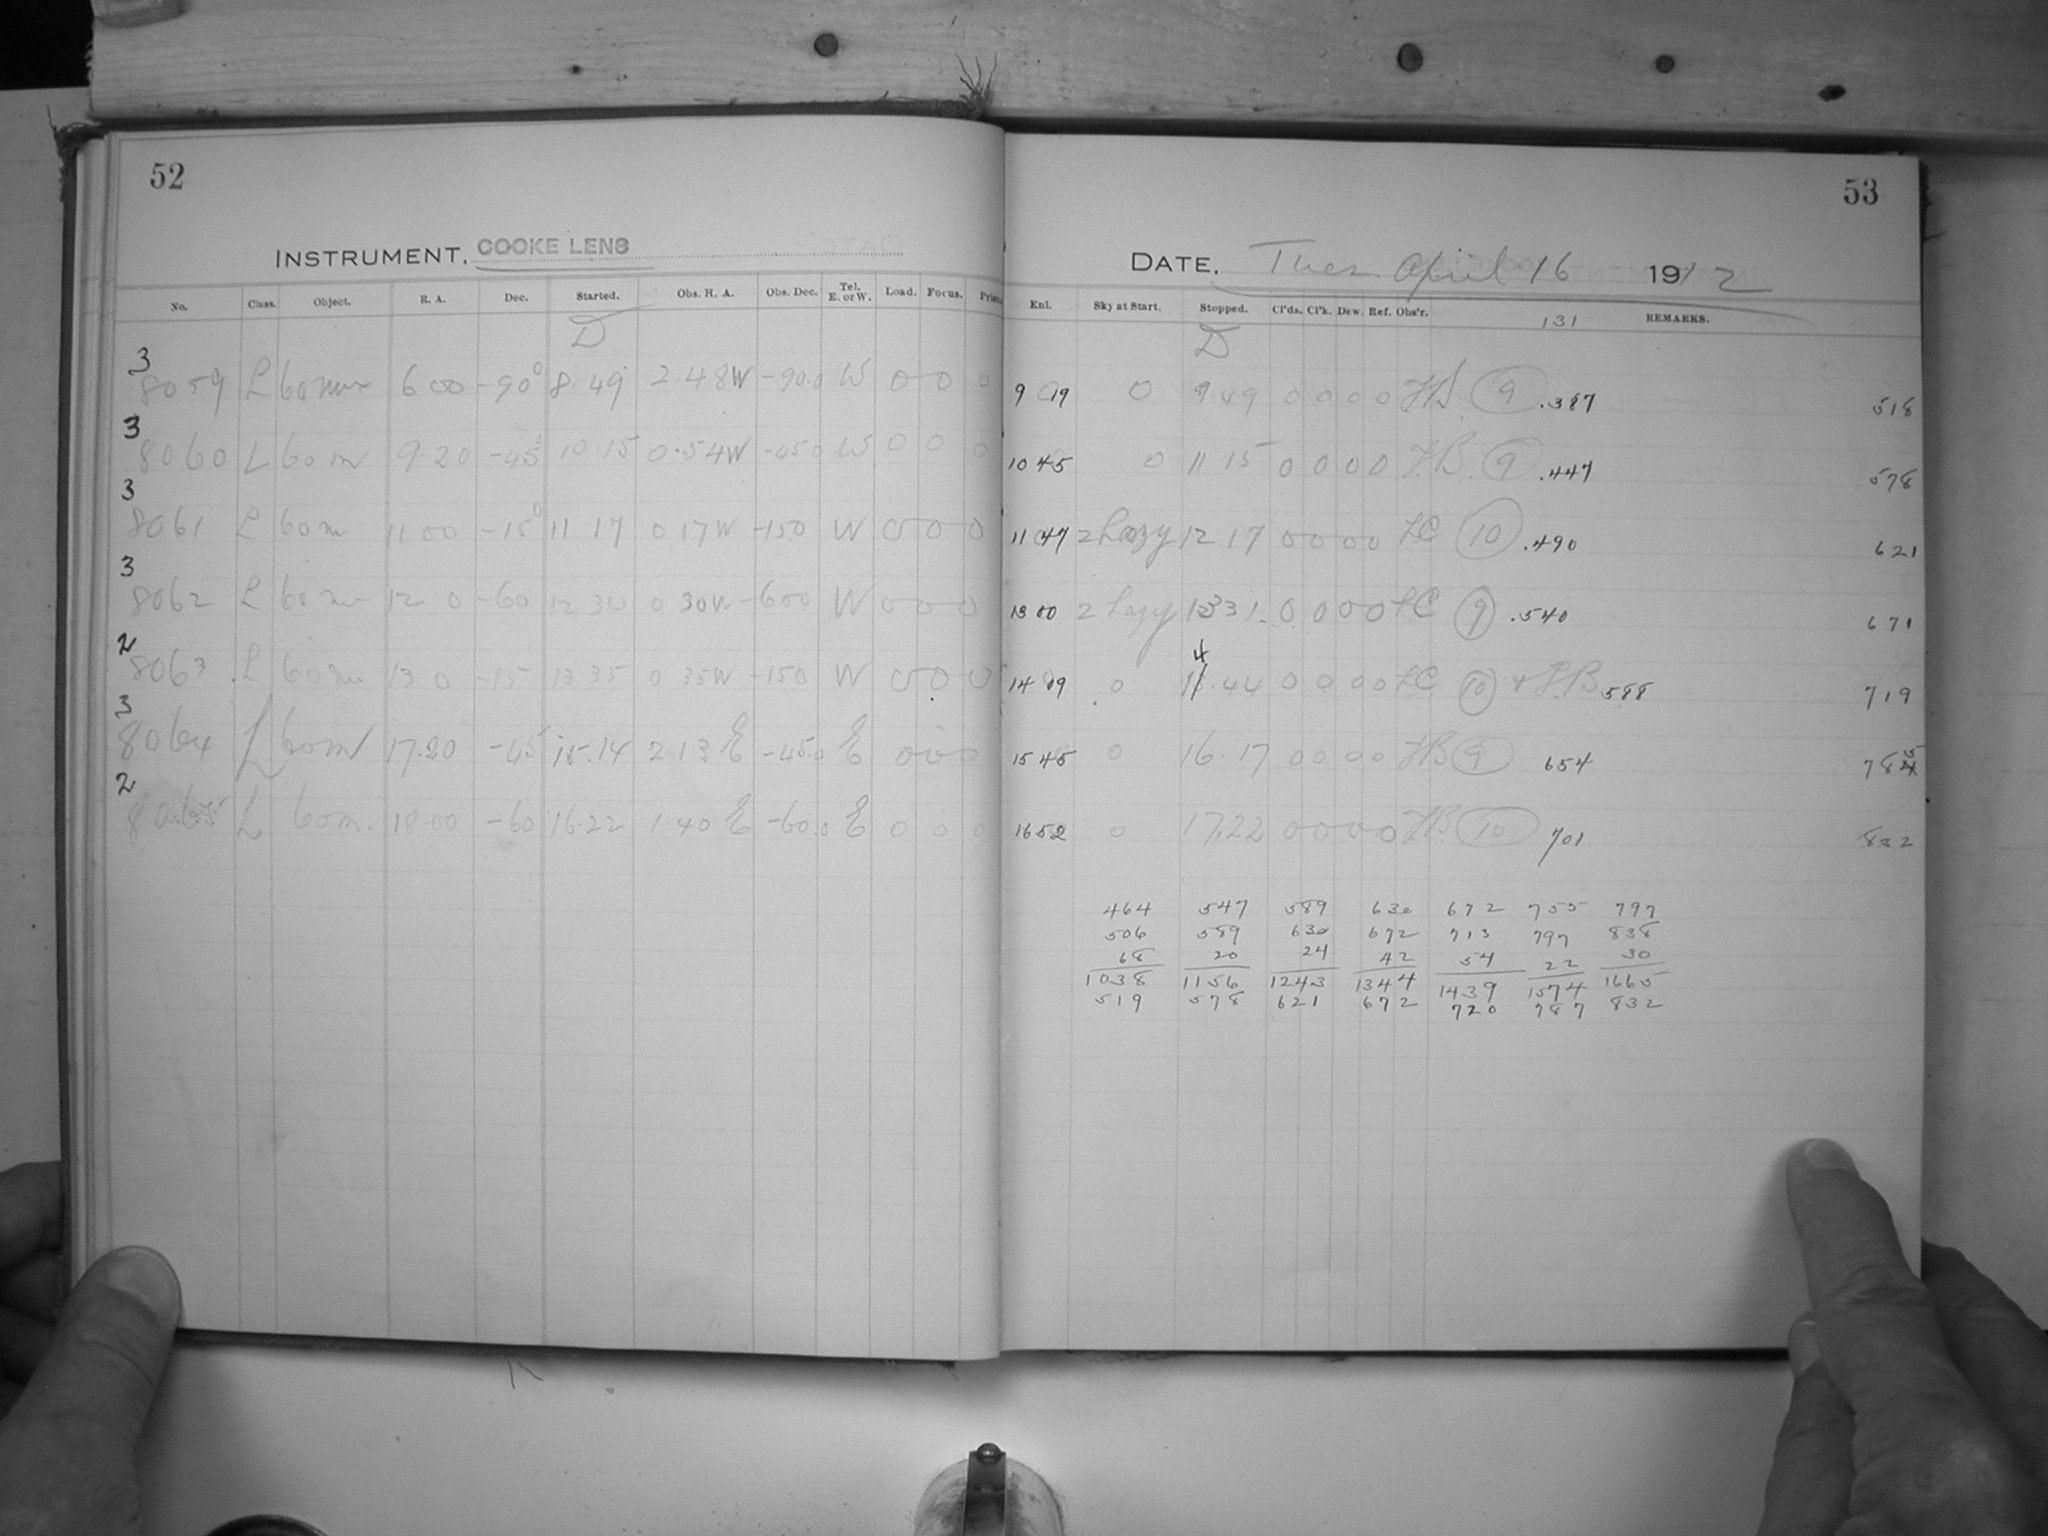 52
INSTRUMENT, COOKE LENS
No. Class. Object. R. A. Dec. Started. Obs. H. A. Obs. Dec. Tel. E. or W. Load. Focus.
D
3
8059 L 60 m 6 00 -90° 8.49 2.48W -90.0 W 0 0 0
3
8060 L 60 m 9.20 -45 10.15 0.54W -45.0 W 0 0 0
3
8061 L 60 m 11 00 -15° 11 17 0 17W -150 W 0 0 0
3
8062 L 60 m 12 0 -60 12 30 0 30W -600 W 0 0 0
2
8063 L 60 m 13 0 -15 13 35 0 35W -150 W 0 0 0
3
8064 L 60m 17.20 -45 15.14 2.13 E -45.0 E 0 0 0
2
8065 L 60m. 18.00 -60 16.22 1.40 E -60.0 E 0 0 0
53
DATE, Tues. April 16 1912
Enl. Sky at Start. Stopped. Cl'ds. Cl'k. Dew. Ref. Obs'r. 131 REMARKS.
D
9 19 0 9 49 0 0 0 0 9 .387 518
10 45 0 11 15 0 0 0 0 9 .447 578
11 47 2 hazy 12 17 0 0 0 0 LC 10 .490 621
13 00 2 hazy 1331. 0 0 0 0 LC 9 .540 671
4
14 09 0 .44 0 0 0 0 LC 10 588 719
15 45 0 16.17 0 0 0 0 9 654 785
16 52 0 17.22 0 0 0 0 10 701 832
464 547 589 630 672 755 797
506 589 630 672 713 797 838
68 20 24 42 54 22 30
1038 1156 1243 1344 1439 1574 1665
519 578 621 672 720 787 832